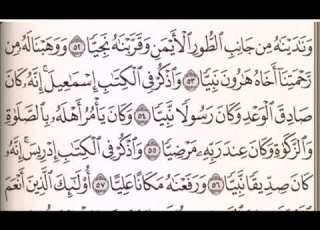 وَنَٰدَيْنَٰهُ مِن جَانِبِ ٱلطُّورِ ٱلْأَيْمَنِ وَقَرَّبْنَٰهُ نَجِيًّا ٥٢ وَوَهَبْنَا لَهُۥ مِن
رَّحْمَتِنَآ أَخَاهُ هَٰرُونَ نَبِيًّا ٥٣ وَٱذْكُرْ فِى ٱلْكِتَٰبِ إِسْمَٰعِيلَ إِنَّهُۥ كَانَ
صَادِقَ ٱلْوَعْدِ وَكَانَ رَسُولًا نَّبِيًّا ٥٤ وَكَانَ يَأْمُرُ أَهْلَهُۥ بِٱلصَّلَوٰةِ
وَٱلزَّكَوٰةِ وَكَانَ عِندَ رَبِّهِۦ مَرْضِيًّا ٥٥ وَٱذْكُرْ فِى ٱلْكِتَٰبِ إِدْرِيسَ إِنَّهُۥ
كَانَ صِدِّيقًا نَّبِيًّا ٥٦ وَرَفَعْنَٰهُ مَكَانًا عَلِيًّا ٥٧ أُو۟لَٰٓئِكَ ٱلَّذِينَ أَنْعَمَ